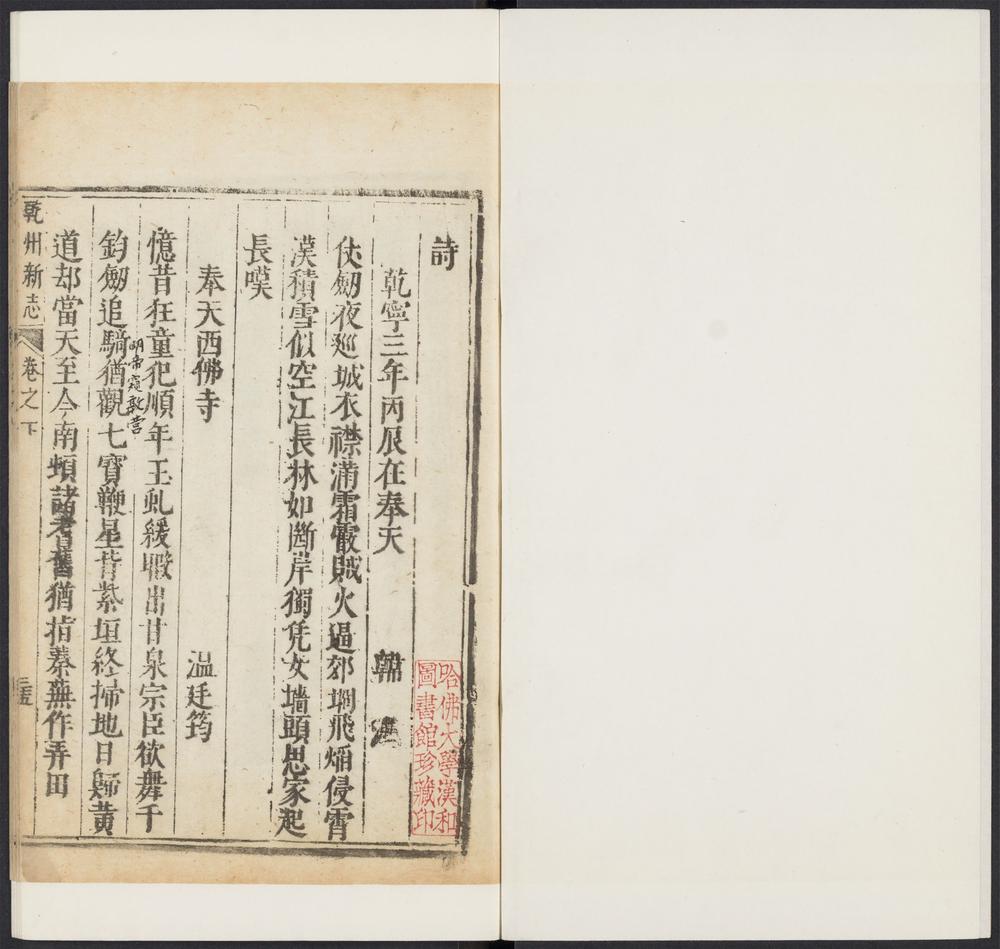 詩
乾寧三年丙辰在奉天 韓
仗劒夜廵城衣襟滿霜霰賊火逼郊坰飛焰侵霄
漢積雪似空江長林如斷岸獨凭女墻頭思家起
長嘆
奉天西佛寺 温廷筠
憶昔狂童犯順年玉虬緩轡出甘泉宗臣欲舞千
鈞劒追騎猶觀七寳鞭星背紫垣終掃地日歸黄
明帝窺敦營
道却當天至今南頓諸耆舊猶指蓁蕪作弄田
乾州新志 卷之下
三五
哈佛大學漢和
圖書館珍藏印